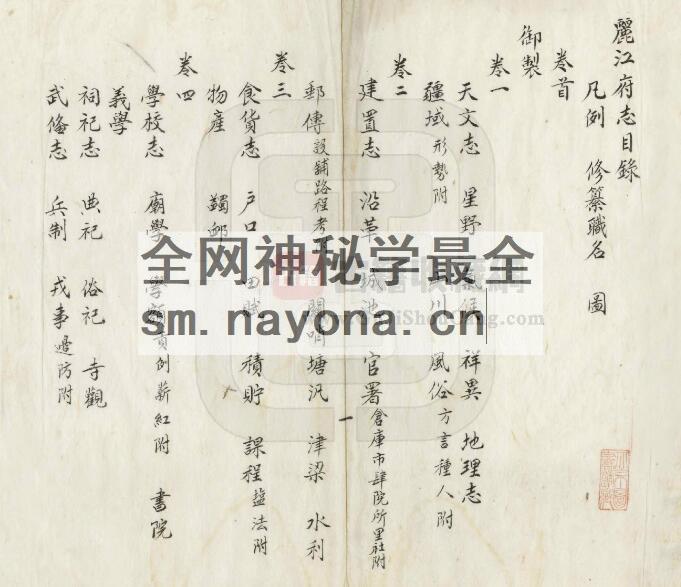 麗江府志目錄
卷首
凡例 修纂職名 圖
御製
卷一
天文志 星野 祥異 地理志
疆域形勢附 山川 風俗方言種人附
卷二
建置志 沿革 城池 官署倉庫市肆院所里社附
郵傳設舖路程考附 關哨塘汛 津梁 水利
卷三
食貨志 戶口 田賦 積貯 課程鹽法附
物產 蠲卹
卷四
學校志 廟學 學額貢例薪紅附 書院
義學
祠祀志 典祀 俗祀 寺觀
武俻志 兵制 戎事邊防附
一
全网神秘学最全
sm. nayona. cn